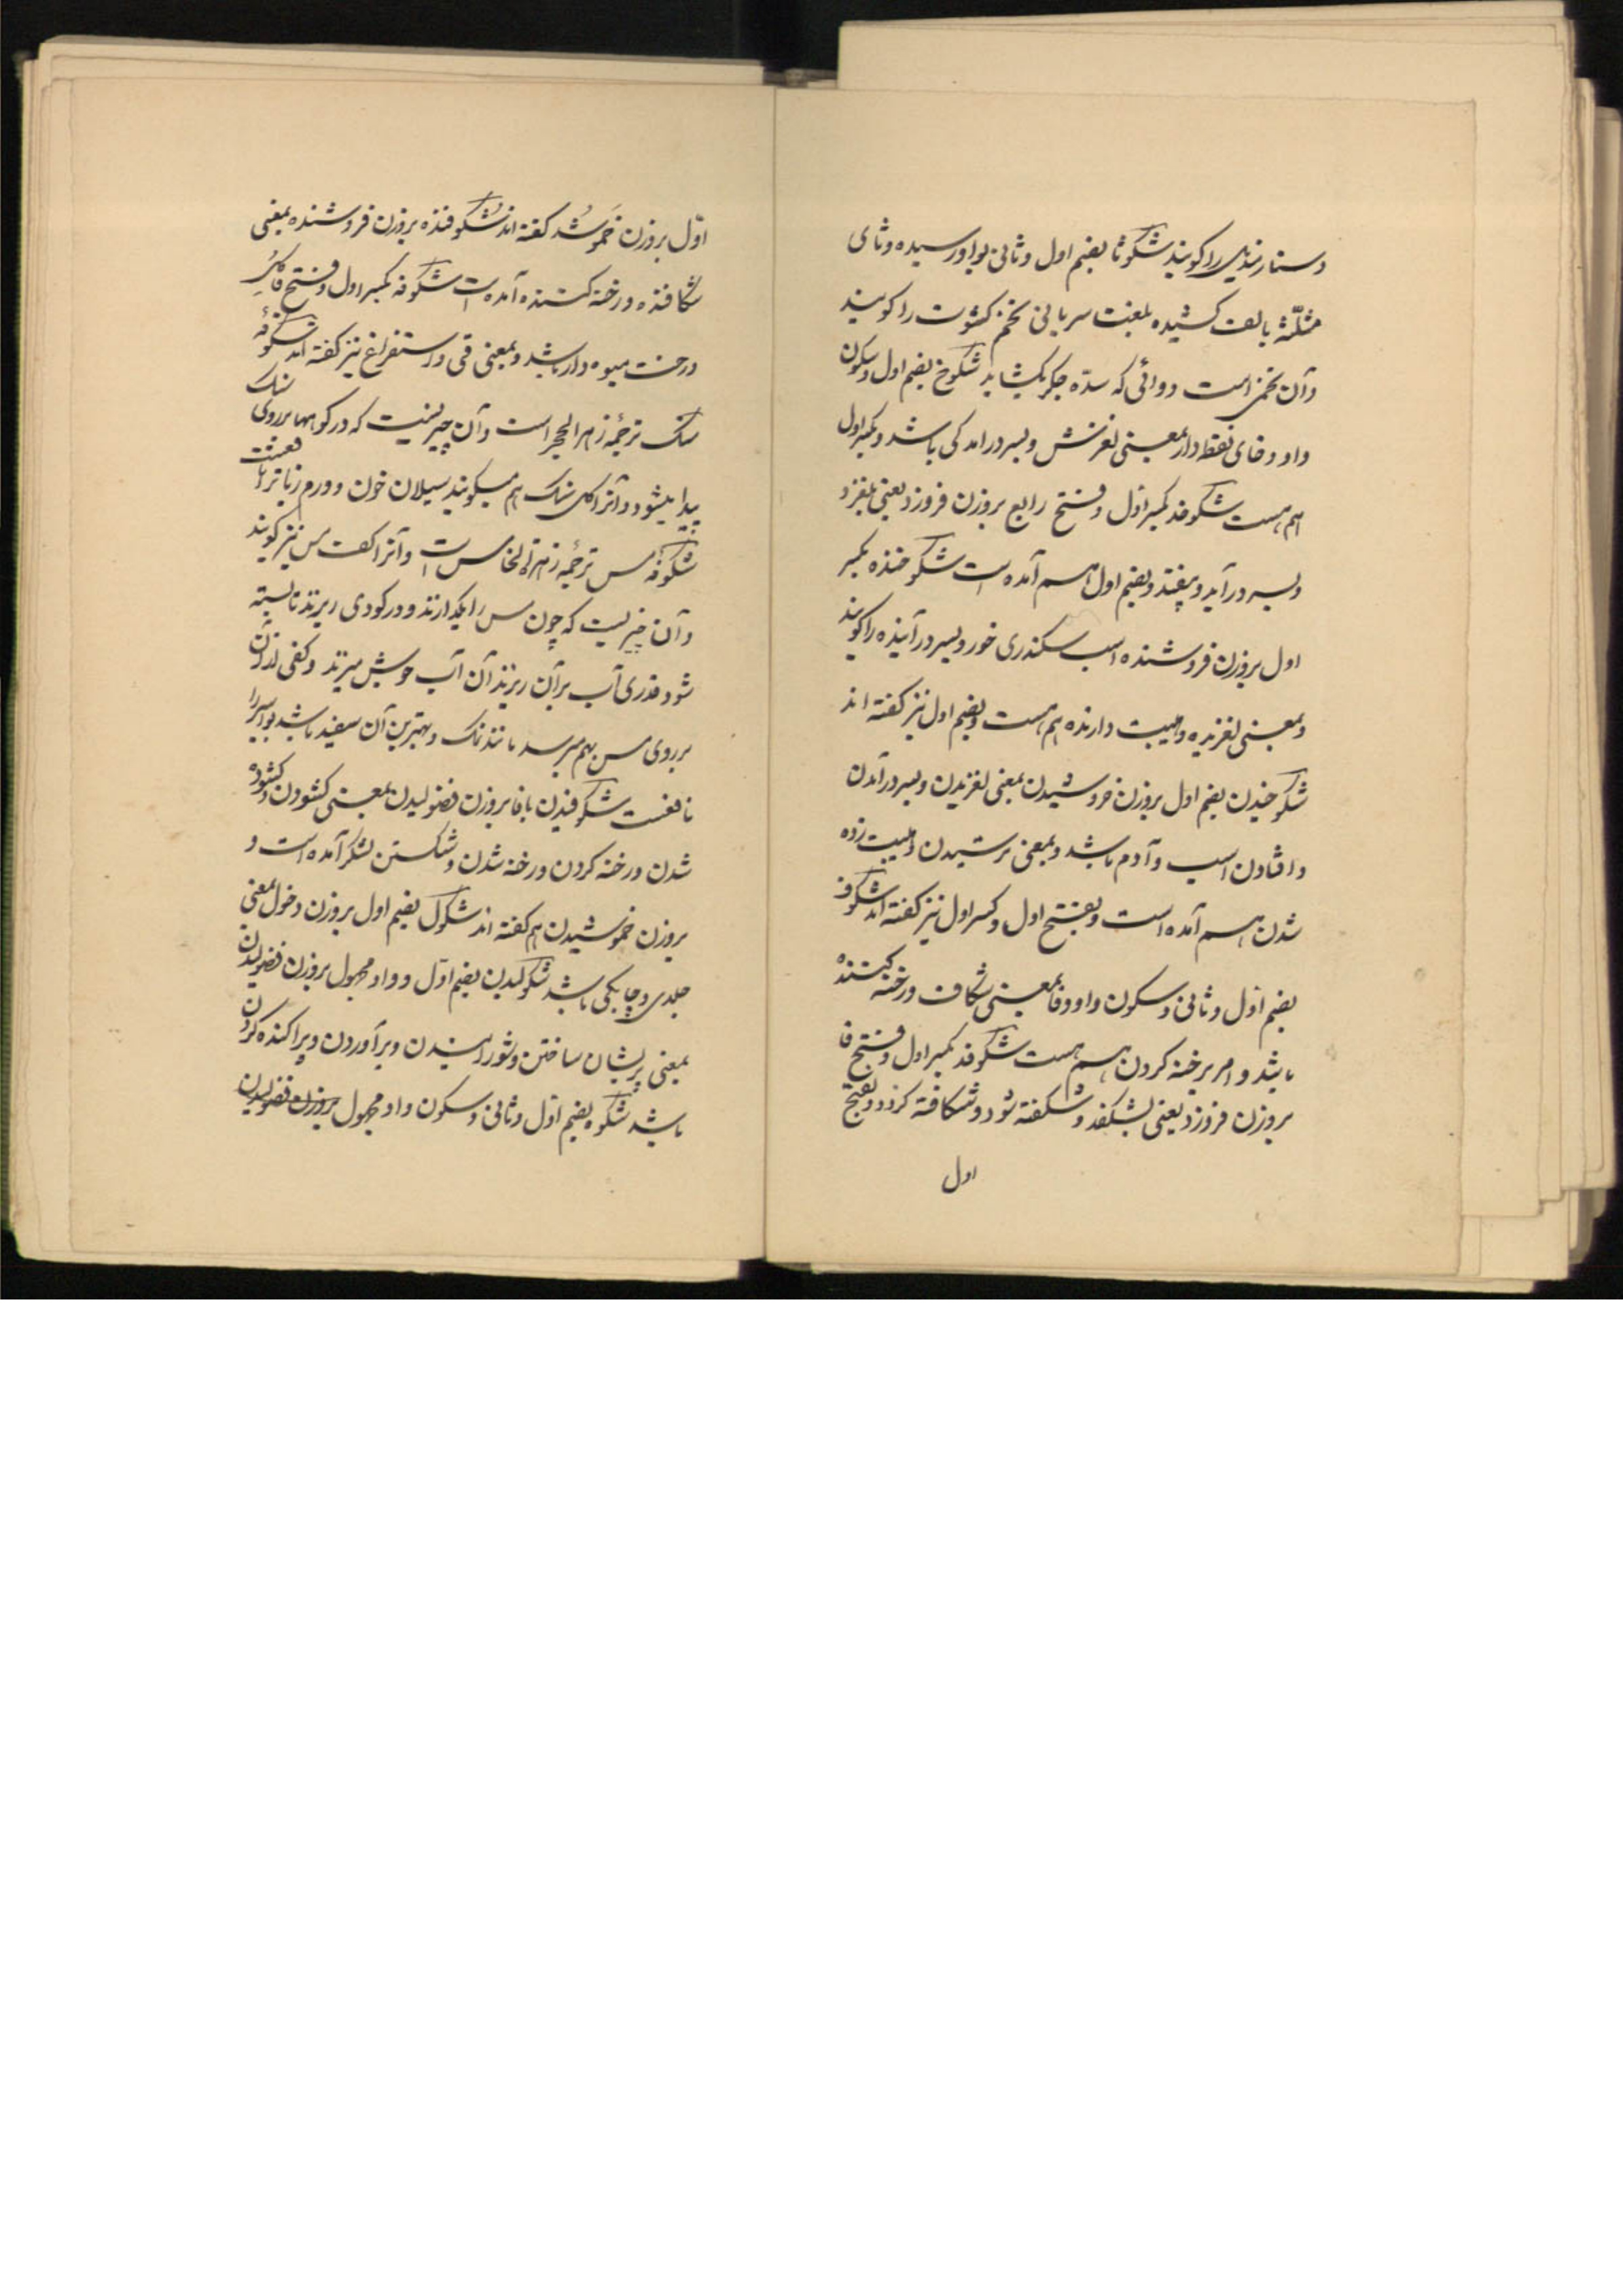 دستار بندی را کویند شکوثا بضم اول و ثانی بواو رسیده و ثای
مثلّثه بالف کشیده بلغت سریانی تخم کشوث را کویند
و آن تخمی است دوائی که سدّه جکر بکشاید شکوخ بضم اول و سکون
واو و خای نقطه دار بمعنی لغزش و بسر درامدکی باشد و بکسر اول
هم هست شکوخد بکسر اوّل و فتح رابع بروزن فروزد یعنی بلغزد
و بسر درآید و بیفتد و بضم اول هم آمده است شکوخنده بکسر
اول بروزن فروشنده اسب سکندری خور و بسر درآینده را کویند
و بمعنی لغزنده و هیبت دارنده هم هست و بضم اول نیز کفته اند
شکوخیدن بضم اول بروزن خروشیدن بمعنی لغزیدن و بسر درآمدن
و افتادن اسب و آدم باشد و بمعنی ترسیدن و هیبت زده
شدن هم آمده است و بفتح اول و کسر اول نیز کفته اند شکوف
بضم اول و ثانی و سکون واو و فا بمعنی شکاف و رخنه کننده
باشد و امر برخنه کردن هم هست شکوفد بکسر اول و فتح فا
بروزن فروزد یعنی بشکفد و شکفته شود و شکافته کردد و بفتح
اول
اوّل بروزن خَموشُد کفته اند شکوفنده بروزن فروشنده بمعنی
شکافنده و رخنه کننده آمده است شکوفه بکسر اول و فتح فا
درخت میوه دار باشد و بمعنی قی و استفراغ نیز کفته اند شکوفهٔ
سنک ترجمهٔ زهر الحجر است و آن چیزیست که در کوهها بر روی سنک
پیدا میشود و آنرا کل سنک هم میکویند سیلان خون و ورم زبانرا
شکوفهٔ مس ترجمهٔ زهرة النحاس است و آنرا کف مس نیز کویند
و آن چیزیست که چون مس را بکدازند و در کودی ریزند تا بسته
شود قدری آب بر آن ریزند آن آب جوش میزند و کفی از آن
بر روی مس بهم میرسد مانند نمک و بهترین آن سفید باشد بواسیر را
نافعست شکوفیدن با فا بروزن فضولیدن بمعنی کشودن و کشوده
شدن و رخنه کردن و رخنه شدن و شکستن لشکر آمده است و
بروزن خموشیدن هم کفته اند شکول بضم اول بروزن دخول بمعنی
جلدی و چابکی باشد شکولیدن بضم اوّل و واو مجهول بروزن فضولیدن
بمعنی پریشان ساختن و شورانیدن و برآوردن و پراکنده کردن
باشد شکوه بضم اوّل و ثانی و سکون واو مجهول بروزن